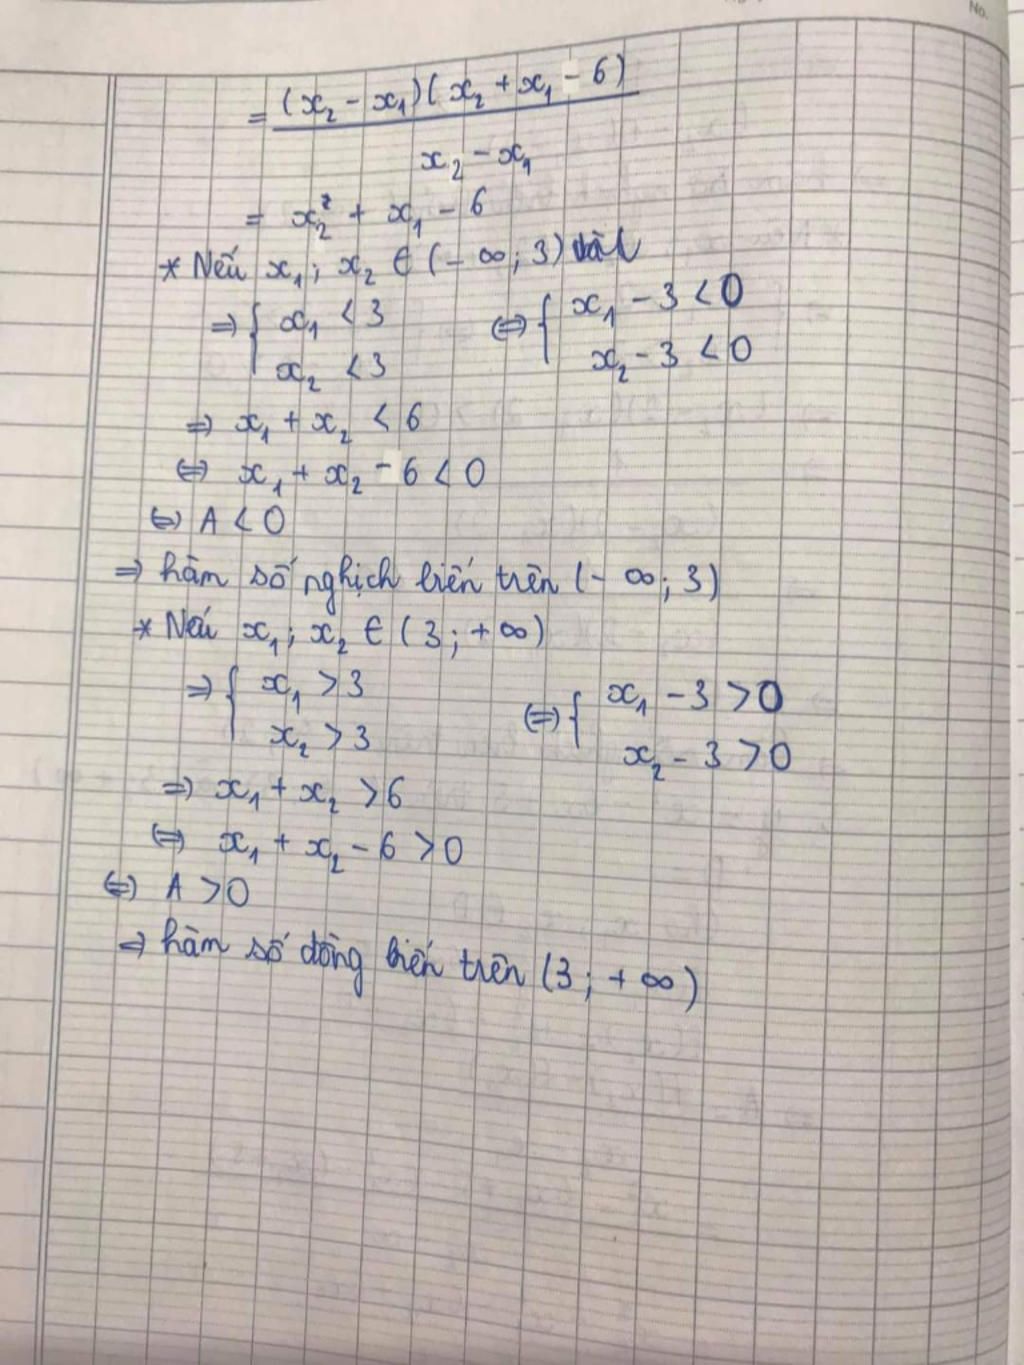 No.
= (x₂ - x₁)(x₂ + x₁ - 6)
x₂ - x₁
= x₂² + x₁ - 6
* Nếu x₁; x₂ ∈ (-∞; 3)
⇒ { x₁ < 3 ⇔ { x₁ - 3 < 0
x₂ < 3 x₂ - 3 < 0
⇒ x₁ + x₂ < 6
⇔ x₁ + x₂ - 6 < 0
⇔ A < 0
⇒ hàm số nghịch biến trên (-∞; 3)
* Nếu x₁; x₂ ∈ (3; +∞)
⇒ { x₁ > 3 ⇔ { x₁ - 3 > 0
x₂ > 3 x₂ - 3 > 0
⇒ x₁ + x₂ > 6
⇔ x₁ + x₂ - 6 > 0
⇔ A > 0
⇒ hàm số đồng biến trên (3; +∞)